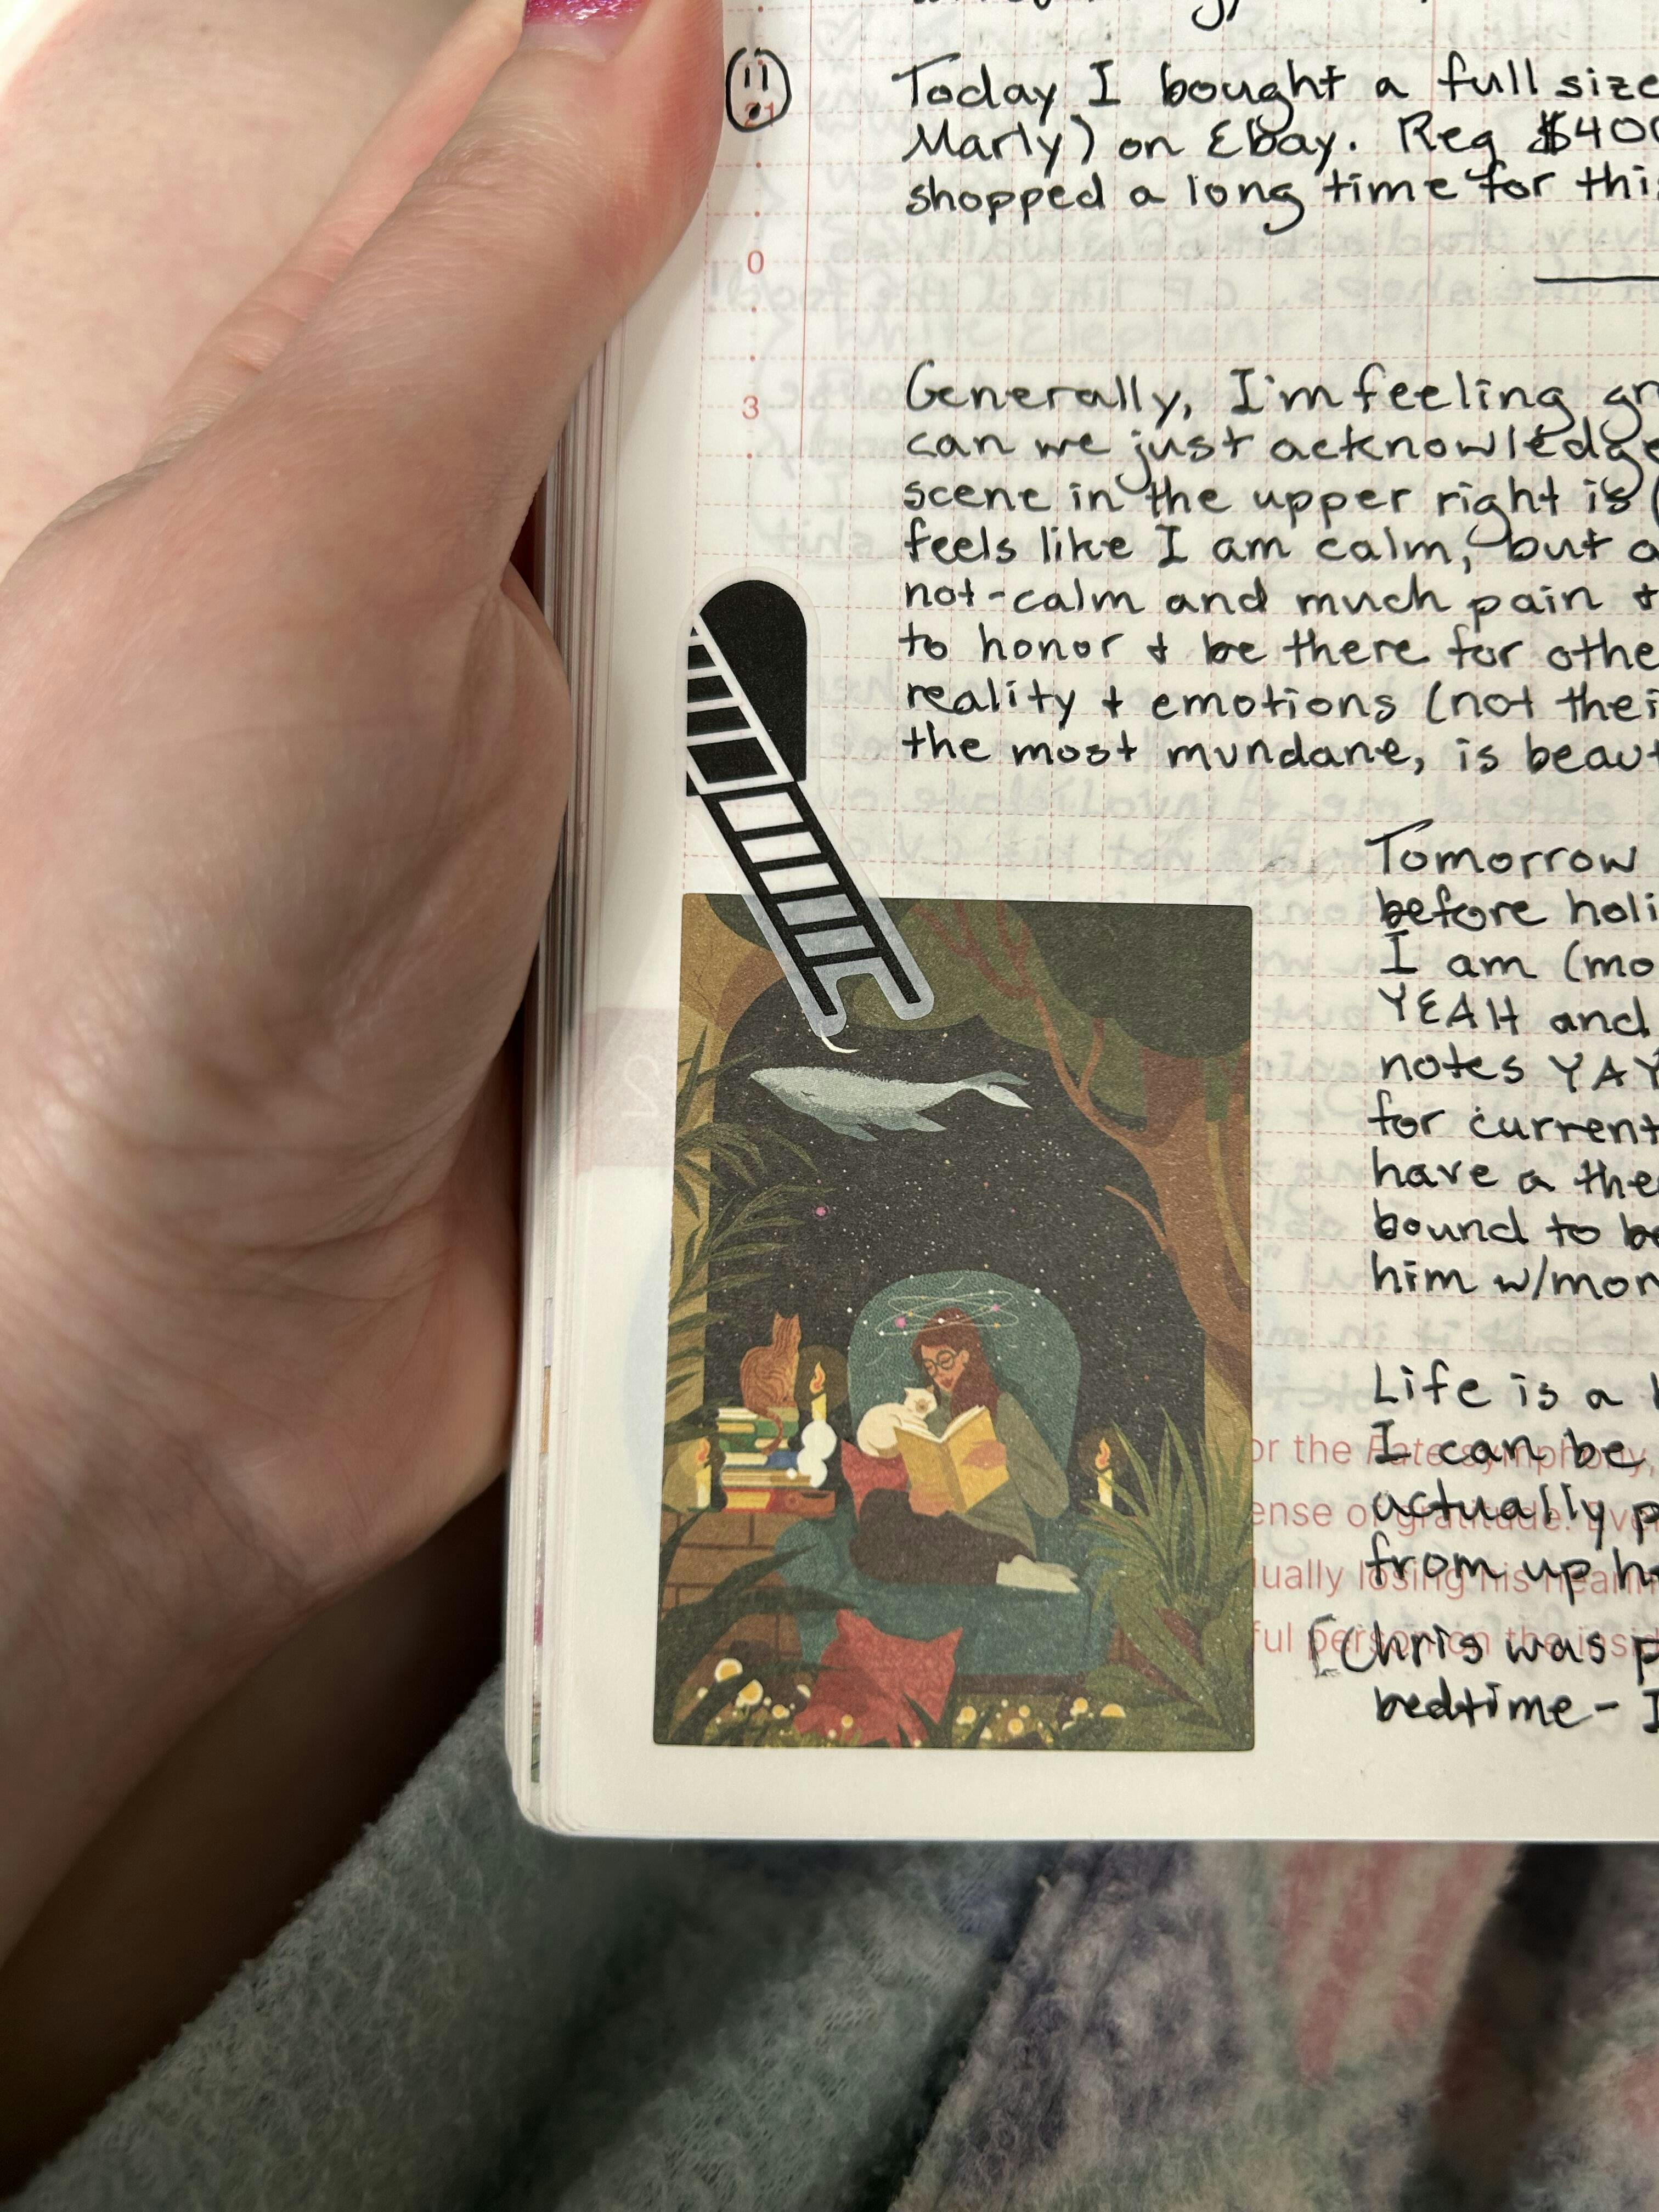 Today I bought a full size
Marly) on Ebay. Reg $400
shopped a long time for this
0
3
Generally, I'm feeling gr
can we just acknowledge
scene in the upper right is (
feels like I am calm, but a
not-calm and much pain +
to honor + be there for othe
reality + emotions (not thei
the most mundane, is beaut
Tomorrow
before holi
I am (mo
YEAH and
notes YAY
for current
have a the
bound to be
him w/mor
Life is a
I can be
or the Fate symphony,
actually p
ense of gratitude. Eve
from up h
dually losing his heari
[Chris was p
ful person on the insid
bedtime - I